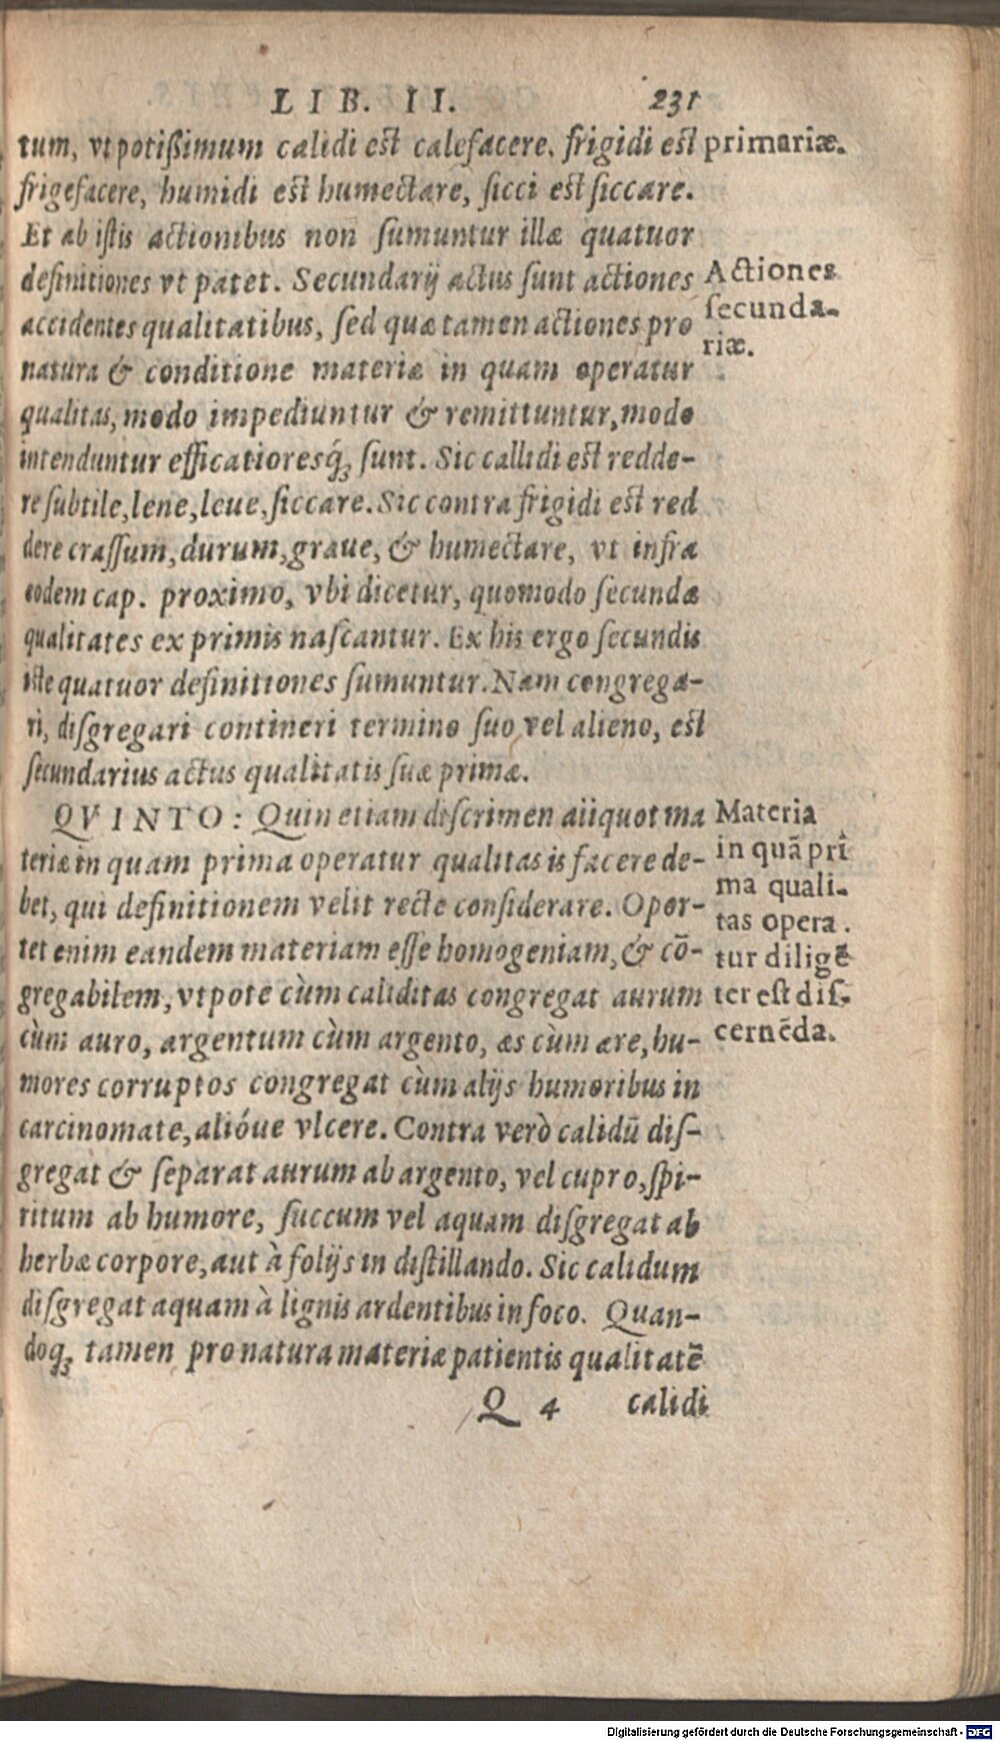 LIB. II. 231
tum, vt potißimum calidi est calefacere. frigidi est
frigefacere, humidi est humectare, sicci est siccare.
Et ab istis actionibus non sumuntur illæ quatuor
definitiones vt patet. Secundarij actus sunt actiones
accidentes qualitatibus, sed quæ tamen actiones pro
natura & conditione materiæ in quam operatur
qualitas, modo impediuntur & remittuntur, modo
intenduntur efficatioresq́; sunt. Sic callidi est redde-
re subtile, lene, leue, siccare. Sic contra frigidi est red
dere crassum, durum, graue, & humectare, vt infra
eodem cap. proximo, vbi dicetur, quomodo secundæ
qualitates ex primis nascantur. Ex his ergo secundis
iste quatuor definitiones sumuntur. Nam congrega-
ri, disgregari contineri termino suo vel alieno, est
secundarius actus qualitatis suæ primæ.
QVINTO: Quin etiam discrimen aliquot ma
teriæ in quam prima operatur qualitas is facere de-
bet, qui definitionem velit recte considerare. Opor-
tet enim eandem materiam esse homogeniam, & cō-
gregabilem, vtpote cùm caliditas congregat aurum
cùm auro, argentum cùm argento, æs cùm ære, hu-
mores corruptos congregat cùm alijs humoribus in
carcinomate, alióue vlcere. Contra verò calidū dis-
gregat & separat aurum ab argento, vel cupro, spi-
ritum ab humore, succum vel aquam disgregat ab
herbæ corpore, aut à folijs in distillando. Sic calidum
disgregat aquam à lignis ardentibus in foco. Quan-
doq; tamen pro natura materiæ patientis qualitatē
Q 4 calidi
primariæ.
Actiones
secunda-
riæ.
Materia
in quā pri
ma quali-
tas opera.
tur diligē
ter est dis-
cernēda.
Digitalisierung gefördert durch die Deutsche Forschungsgemeinschaft - DFG